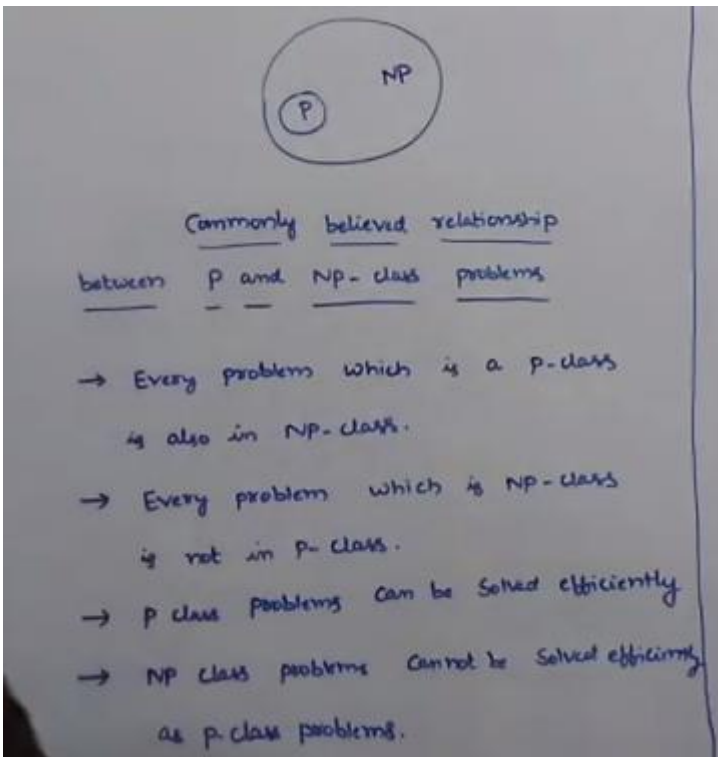 NP
P
Commonly believed relationship
between P and NP-class problems
→ Every problem which is a p-class
is also in NP-class.
→ Every problem which is NP-class
is not in p-class.
→ P class problems can be solved efficiently
→ NP class problems cannot be solved
as p-class problems.